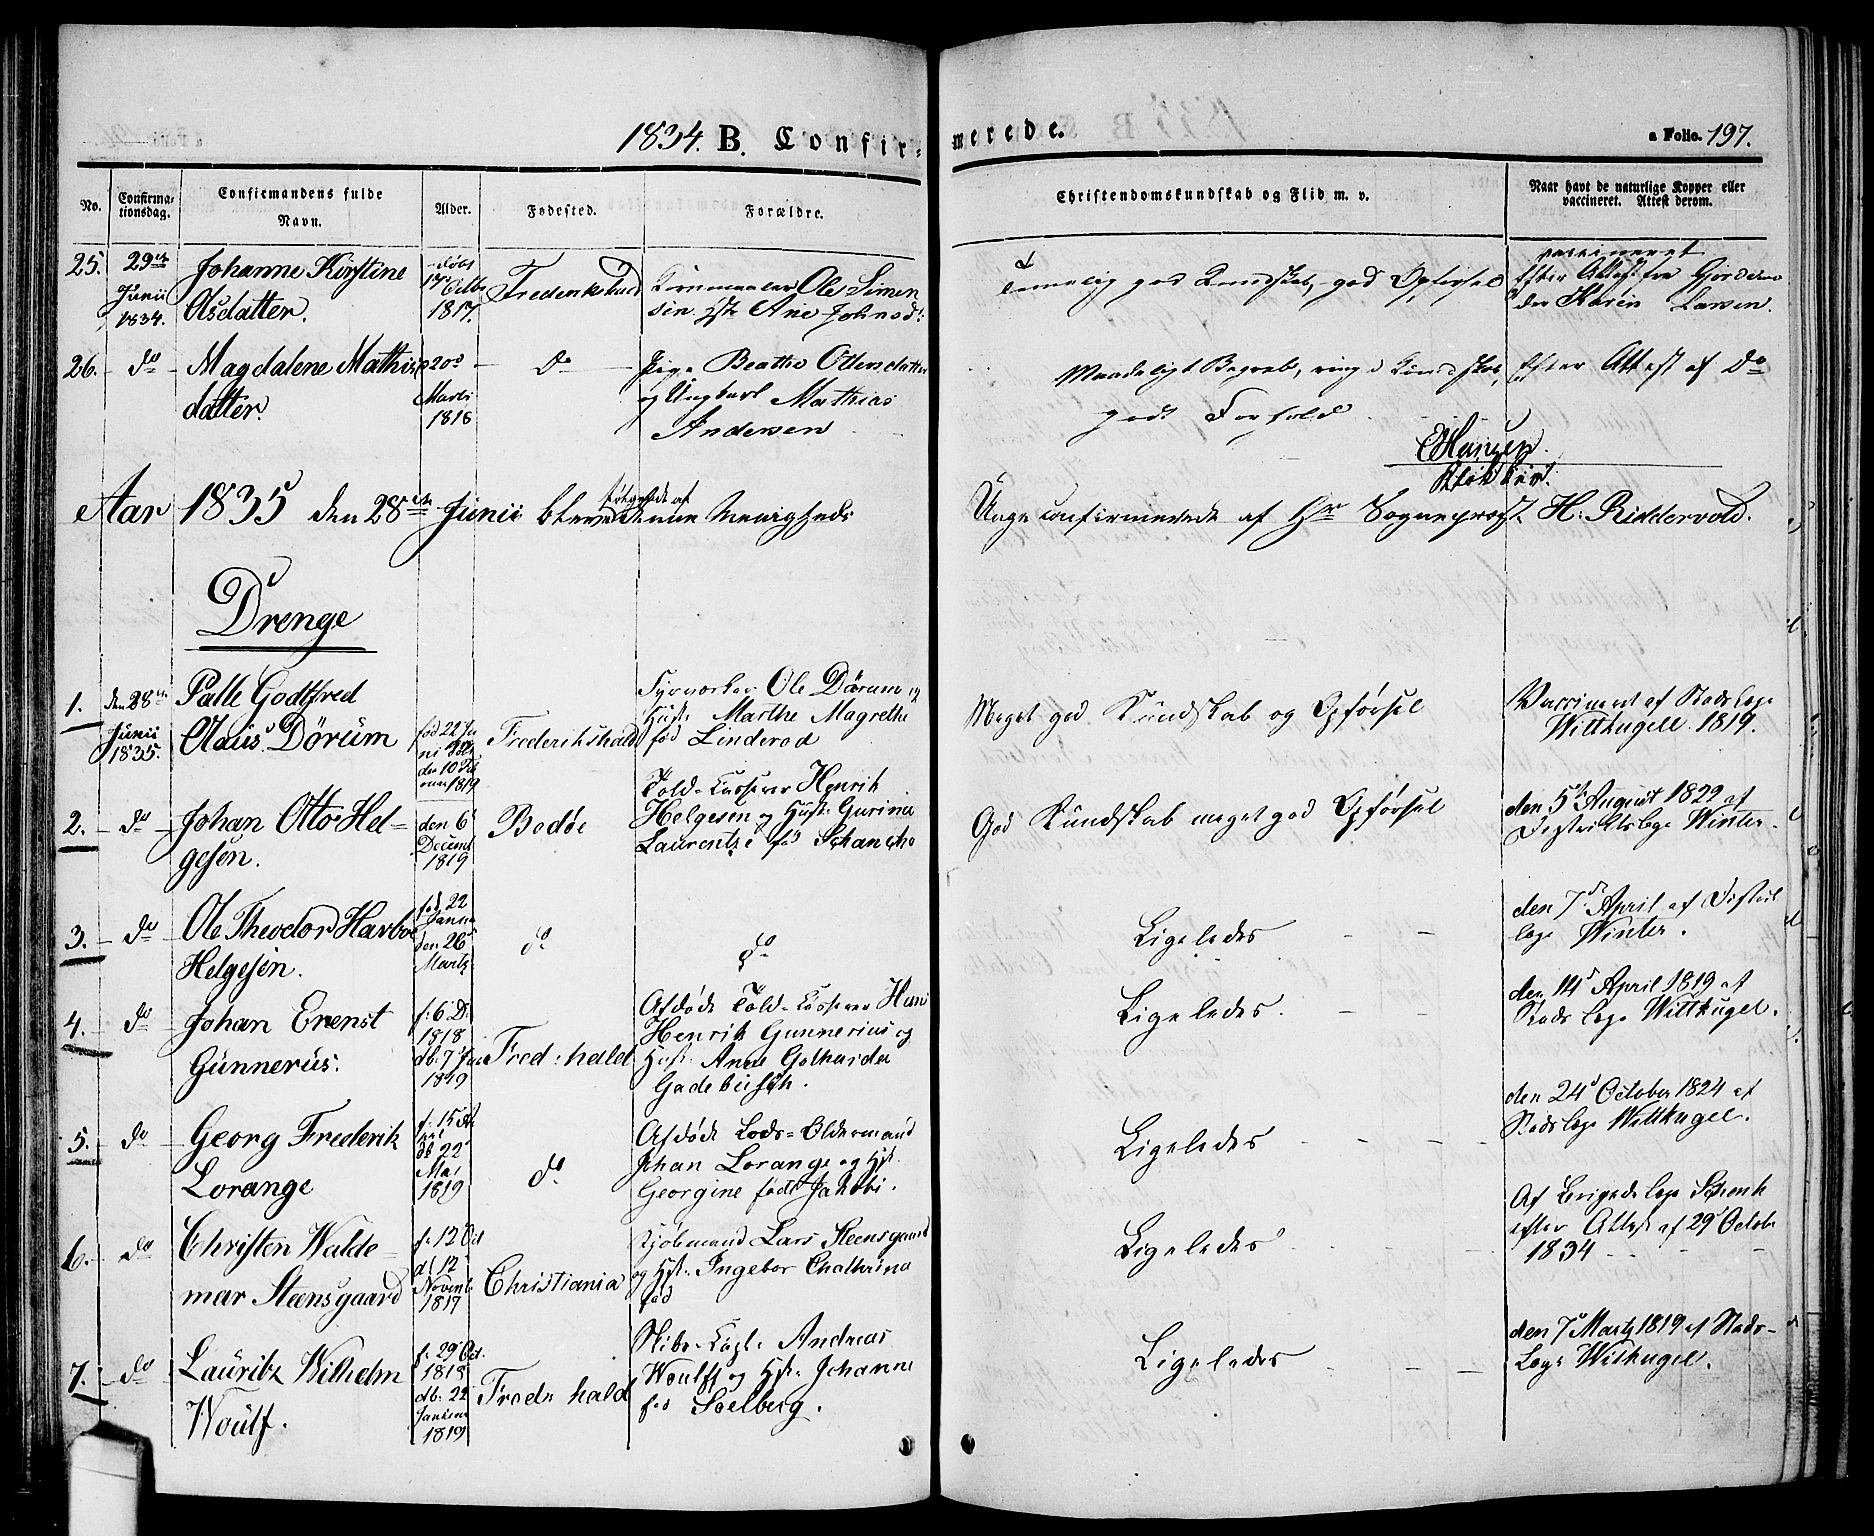 1834. B. Confir-merede.
a Folio. 197.
No.
Confirma-
tionsdag.
Confirmandens fulde
Navn.
Alder.
Fødested.
Forældre.
Christendomskundskab og Flid m. v.
Naar havt de naturlige Kopper eller
vaccineret. Attest derom.
25. 29de Junii 1834.
Johanne Kirstine
Olsdatter.
døbt
17 Octbr
1817.
Frederikshald
Ole Simen
sen Hst: Ane Johnsd:
Temelig god Kundskab, god Opførsel
vaccineret
Efter Attest fra Gjordemo
der Karen Larsen.
26. do
Magdalene Mathis
datter.
20de
Marts
1818
do
Pige Beathe Olensdatter
og Ungkarl Mathias
Andersen
Maadeligt Begreb, ringe Kundskab,
godt Forhold.
Efter Attest af do
Hansen.
Aar 1835 den 28de Junii bleve følgende af denne Menigheds
Unge confirmerede af Hr Sogneprest H. Riddervold.
Drenge
1. den 28de Junii 1835.
Palle Godtfred
Olaus Dörum
fød 22 Ju
ni
den 10
1819
Frederikshald
Ole Dörum og
Hust: Marthe Magrethe
fød Linderod
Meget god Kundskab og Opførsel
Vaccineret af Stadslæge
Wittkugell 1819.
2. do
Johan Otto Hel-
gesen.
den 6
Decemb
1819
Bodøe
Told-Casserer Henrik
Helgesen og Hust: Gurine
Laurentze fød Schancke
God Kundskab meget god Opførsel
den 5te August 1822 af
Districtslæge Winter.
3. do
Ole Theodor Harboe
Helgesen.
fød 22
Janua
den 26
Martz
do
do
Ligeledes
den 7de April af District
læge Winter.
4. do
Johan Erenst
Gunnerus.
f: 6 D.
1818
db: 7 Jan
1819
Fred:hald
Afdøde Told-Casserer Hans
Henrik Gunnerius og
Hust: Anne Gotharda
Gadebusch.
Ligeledes.
den 14d April 1819 af
Stads læge Wittkugel.
5. do
Georg Frederik
Lorange
f: 15 A
pril
db 22
Mai
1819
do
Afdøde Lods-Oldermand
Johan Lorange og Hst.
Georgine født Jakobi.
Ligeledes
den 24d October 1824 af
Stadslæge Wittkugel.
6. do
Christen Walde-
mar Steensgaard
f: 12 Oct
d 12
Novemb
1817
Christiania
Kjøbmand Lars Steensgaard
og Hst: Ingebor Chathrina
fød
Ligeledes
Af Brigade læge Schenk
efter Attest af 29 Octobr
1834
7. do
Lauritz Wilhelm
Woulf.
f: 29 Oct.
1818
db: 22
Januar
1819
Freds hald
Skibs-Capt: Andreas
Woulff og Hst: Johanne
fød Soelberg.
Ligeledes
den 7d Martz 1819 af Stads-
Læge Witkugel.